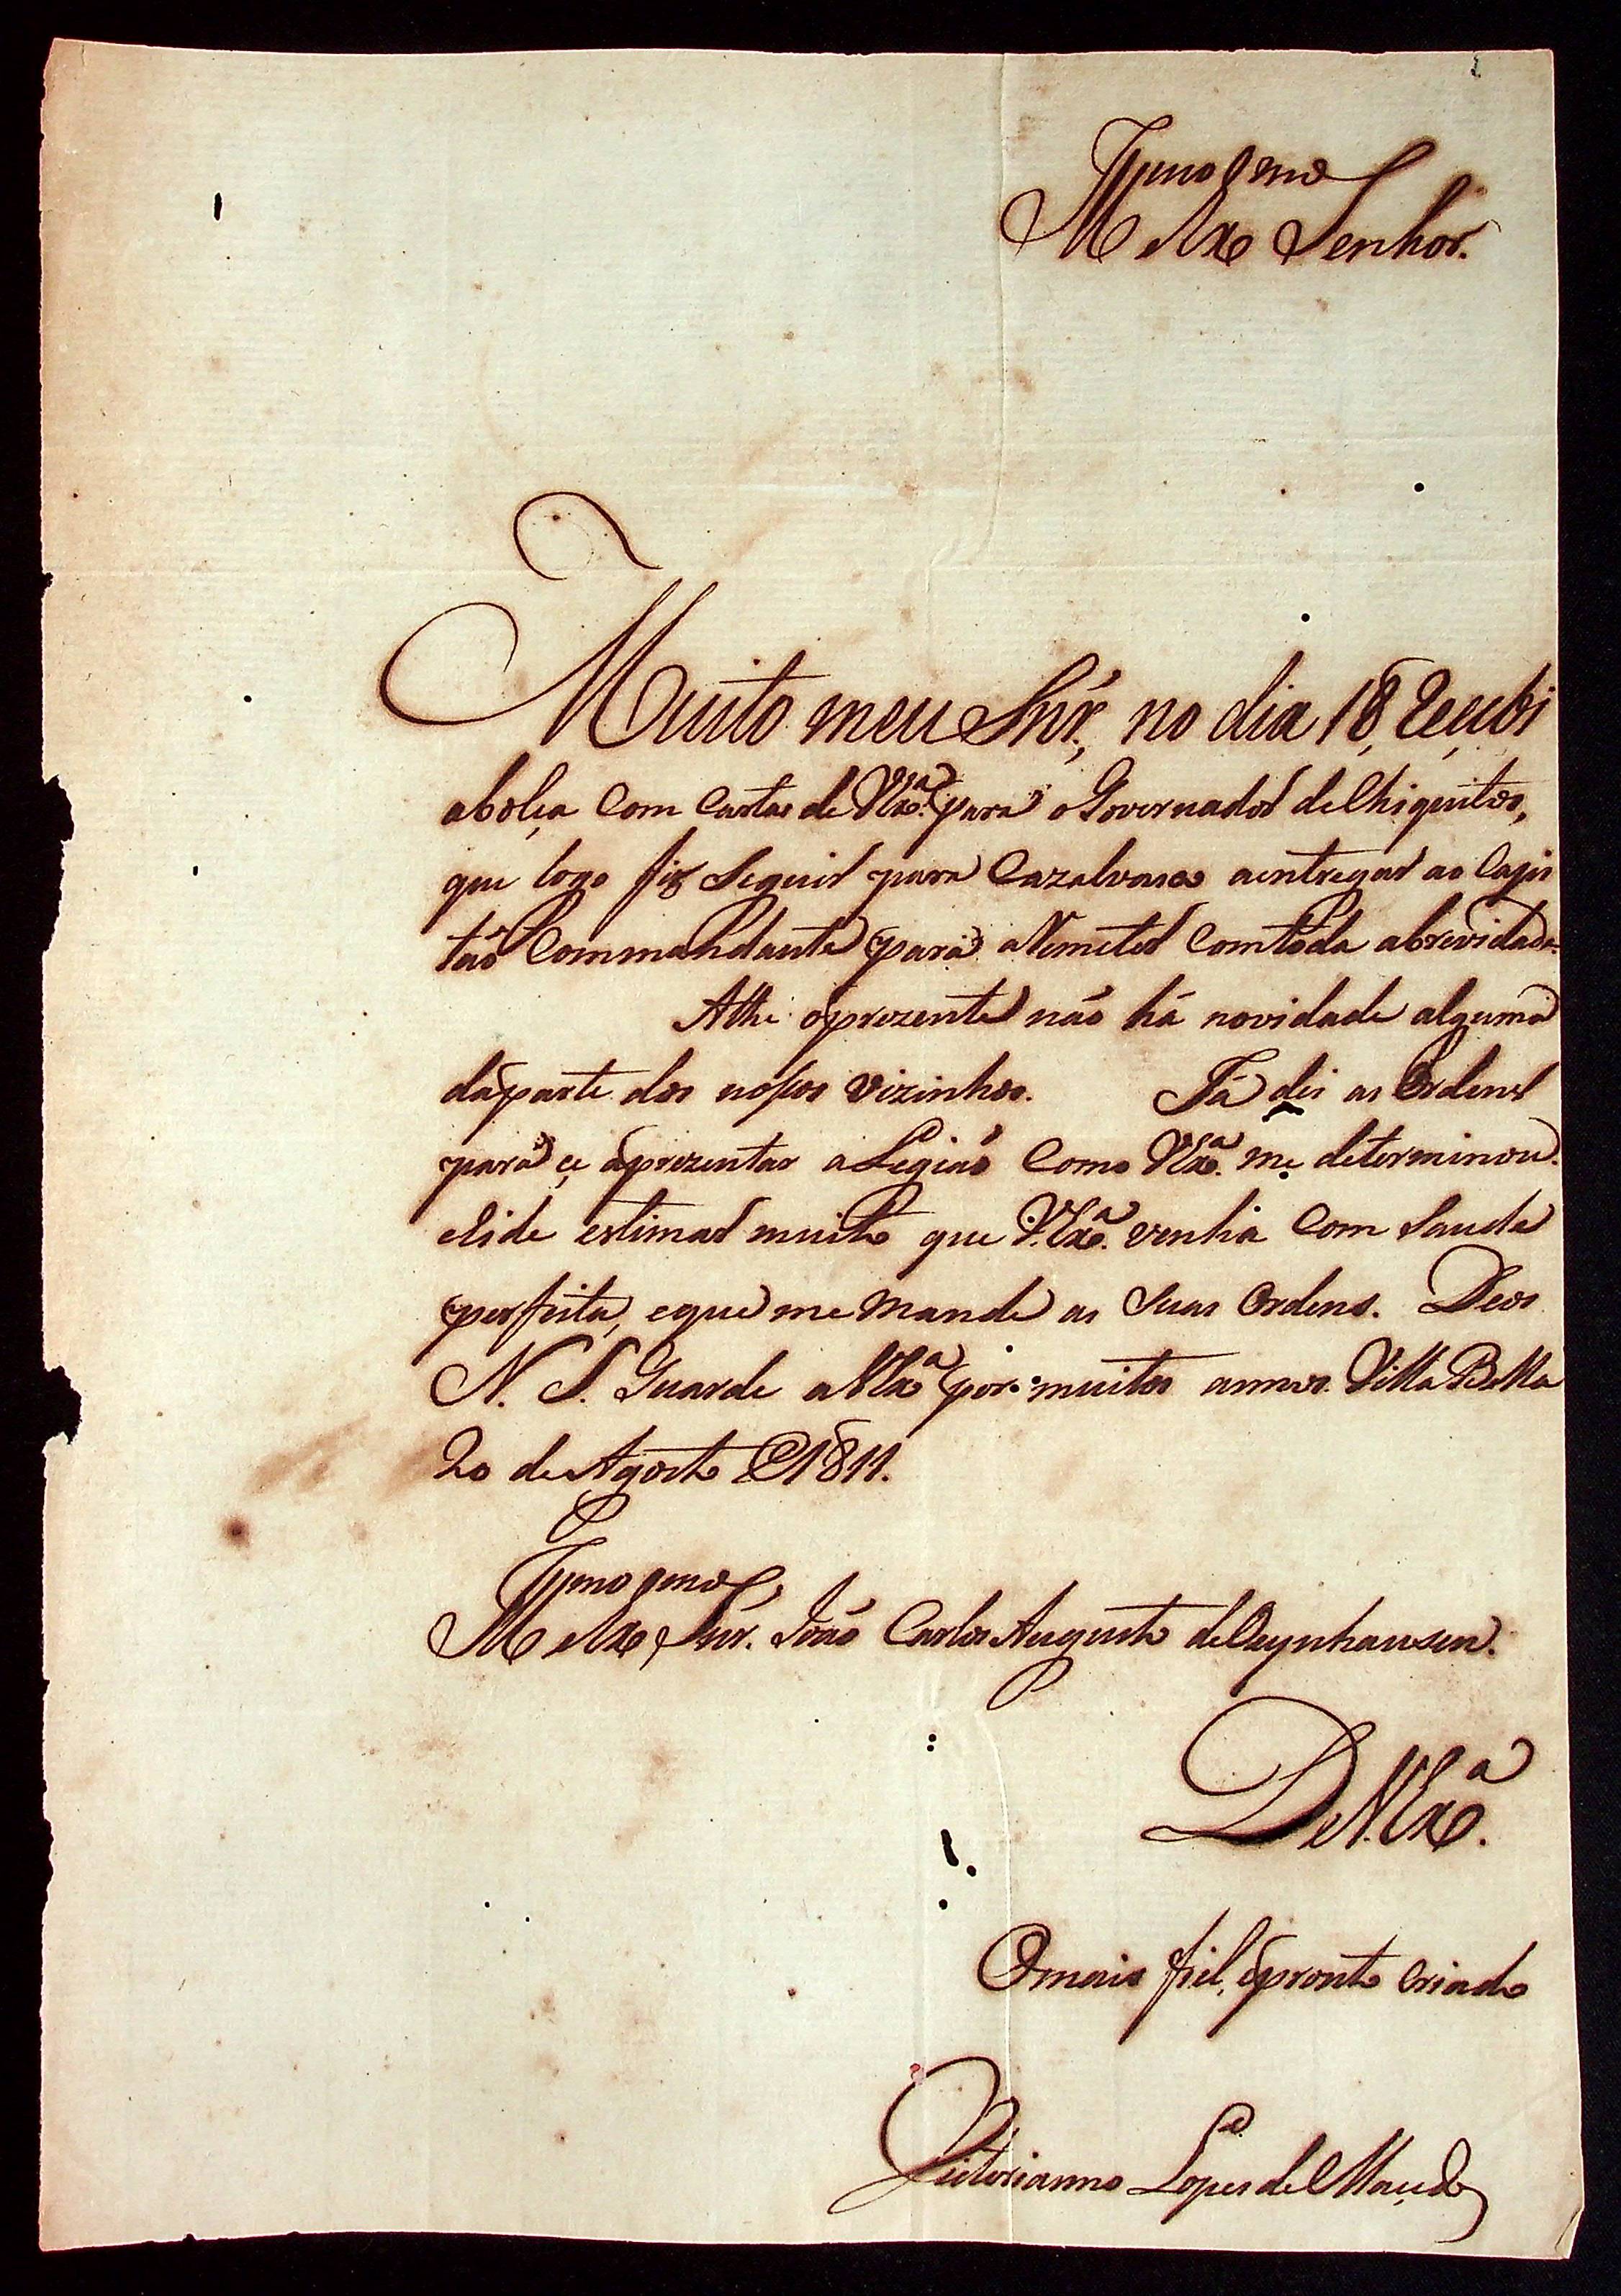 Illmo Exmo Senhor.
Muito meu Snr', no dia 18, Reçubi
abolça Com Cartas de VExa. para o Governador de Chiquitos,
que logo fiz Seguir para Cazalvasco aentregar ao Capi
taõ Commandante para aRemeter Comtoda abrevidade.
Athe oprezente náo há novidade alguma
daparte dos nossos vizinhos. Já dei as Ordens
para çe aprezentar aLegiaõ Como VExa. me determinou.
Eide estimar muito que V.Exa. venha Com Saude
perfeita, eque me Mande as Suas Ordens. Deos
N. S. Guarde a VExa por muitos annos. Villa Bella
20 de Agosto de 1811.
Illmo Exmo Snr. Joáo Carlos Augusto de Oeynhausen.
De V.Exa.
Omais fiel, epronto Criado
Victorianno Lopes de Maçedo